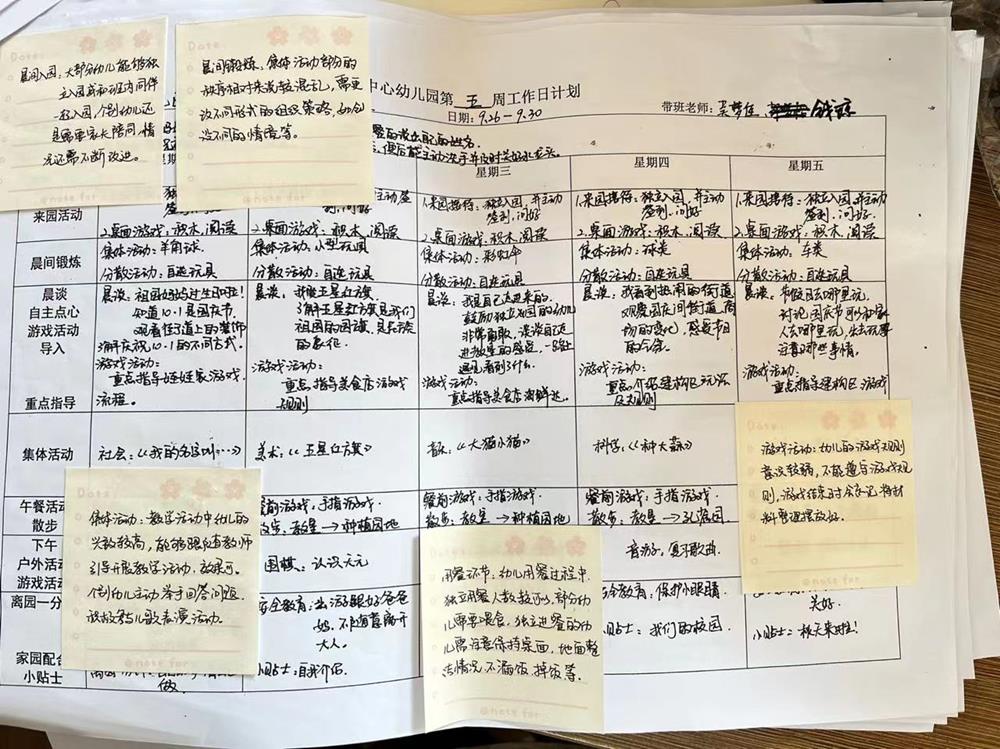 Date:
晨间入园：大部分幼儿能够独
立入园或和班内同伴
一起入园，个别幼儿还
是需要家长陪同，情
况还需不断改进。
note for
Date:
晨间锻炼，集体活动部分的
秩序相对来说较混乱，需要
设不同形式的组织策略，如创
设不同的情境等。
note for
中心幼儿园第 五 周工作日计划
日期：9.26－9.30
带班老师：
星期三
星期四
星期五
来园活动
1.来园接待：独立入园，并主动
签到，问好
2.桌面游戏：积木，阅读
1.来园接待：独立入园，并主动
签到，问好
2.桌面游戏：积木，阅读
1.来园接待：独立入园，并主动
签到，问好。
2.桌面游戏：积木，阅读
2.桌面游戏：积木，阅读
2.桌面游戏：积木，阅读
晨间锻炼
集体活动：羊角球
分散活动：自选玩具
集体活动：小型玩具
分散活动：自选玩具
集体活动：彩虹伞
分散活动：自选玩具
集体活动：球类
分散活动：自选玩具
集体活动：车类
分散活动：自选玩具
晨谈
自主点心
游戏活动
导入
重点指导
晨谈：祖国妈妈过生日啦！
知道10.1是国庆节.
观看街道上的装饰
了解庆祝10.1的不同方式。
游戏活动：
重点指导娃娃家游戏
流程。
晨谈：我爱五星红旗
了解五星红旗是我们
祖国的国旗，是
的象征
游戏活动：
重点指导美食店游戏
规则
晨谈：我是自己走进来的。
鼓励独立入园的幼儿
非常勇敢，谈谈自己走
进教室的感觉，一路上
遇见、看到了什么.
游戏活动：
重点指导美食店
晨谈：我看到热闹的街道
观察国庆间街道、商
场的变化，感受节日
的气氛
游戏活动：
重点介绍建构区玩法
及规则
晨谈：节假日去哪里玩.
讨论国庆节可以和家
人去哪里玩，出去玩要
注意哪些事情。
游戏活动：
重点指导建构区游戏
集体活动
社会：《我的名字叫……》
美术：《五星红旗》
音乐：《大猫小猫》
科学：《种大蒜》
午餐活动
散步
餐前游戏：手指游戏.
散步：教室→种植园地
餐前游戏：手指游戏.
散步：教室→种植园地
餐前游戏：手指游戏.
下午
户外活动
游戏活动
围棋：认识天元
音游，复习歌曲.
离园一分
安全教育：出游跟好爸爸
妈妈，不随意离开
大人。
安全教育：保护小眼睛
关好.
家园配合
小贴士
小贴士：自我介绍.
小贴士：我们的校园.
小贴士：秋天来啦！
Date:
集体活动：教学活动中幼儿的
兴致较高，能够跟随教师
引导开展教学活动，效果可。
个别幼儿主动举手回答问题
note for
Date:
用餐环节：幼儿用餐过程中
独立用餐人数较可以，部分幼
儿需要喂食，独立进餐的幼
儿需注意保持桌面，地面整
洁情况，不漏饭，掉饭等.
@note for
Date:
游戏活动：幼儿的游戏规则
意识较弱，不能遵守游戏规
则，游戏结束时会忘记将材
料整理摆放好。
@note for